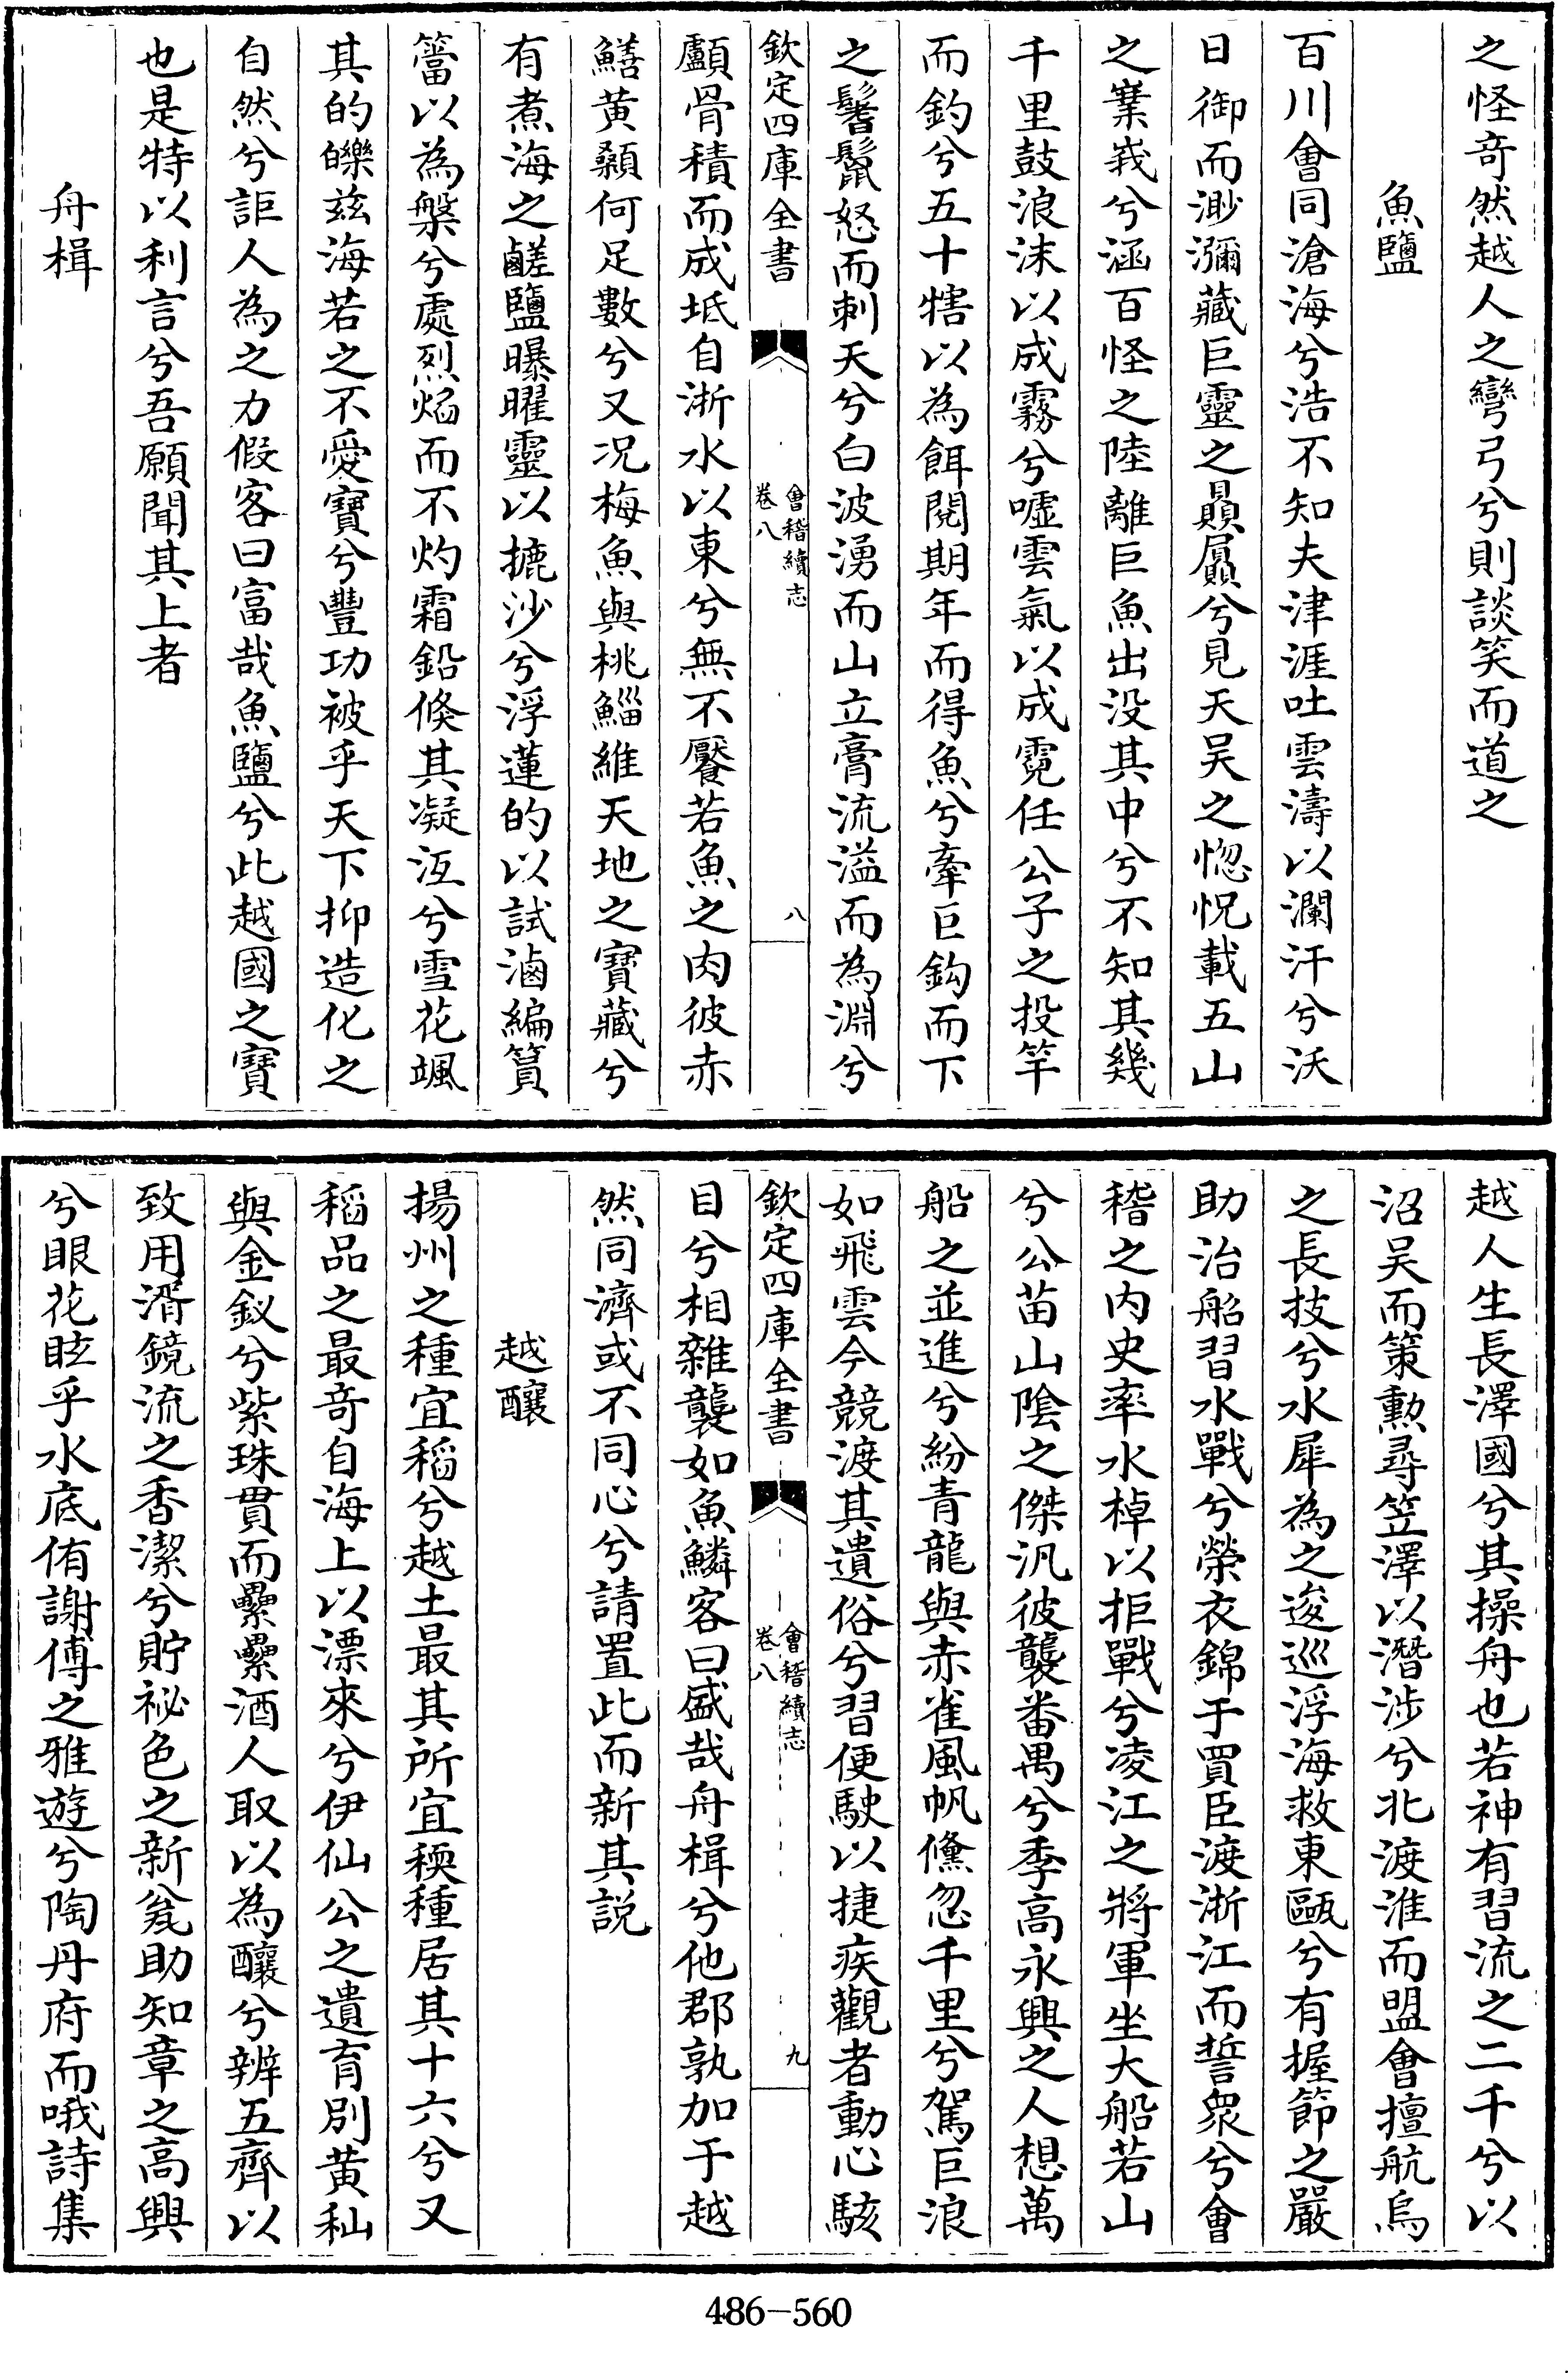 之怪奇然越人之彎弓兮則談笑而道之
魚鹽
百川會同滄海兮浩不知夫津涯吐雲濤以瀾汗兮沃
日御而渺瀰藏巨靈之贔屭兮見天吴之惚怳載五山
之嶪峩兮涵百怪之陸離巨魚出没其中兮不知其幾
千里鼓浪沫以成霧兮噓雲氣以成霓任公子之投竿
而釣兮五十犗以為餌閱期年而得魚兮牽巨鈎而下
之鬐鬣怒而刺天兮白波湧而山立膏流溢而為淵兮
欽定四庫全書
會稽續志
卷八
八
顱骨積而成坻自浙水以東兮無不饜若魚之肉彼赤
鱔黄顙何足數兮又况梅魚與桃鯔維天地之寶藏兮
有煮海之鹺鹽曝曜靈以摝沙兮浮蓮的以試滷編篔
簹以為槃兮處烈焰而不灼霜鉛倏其凝沍兮雪花颯
其的皪兹海若之不愛寶兮豐功被乎天下抑造化之
自然兮詎人為之力假客曰富哉魚鹽兮此越國之寶
也是特以利言兮吾願聞其上者
舟楫
越人生長澤國兮其操舟也若神有習流之二千兮以
沼吴而策勲尋笠澤以潛涉兮北渡淮而盟會擅航烏
之長技兮水犀為之逡巡浮海救東甌兮有握節之嚴
助治船習水戰兮榮衣錦于買臣渡浙江而誓衆兮會
稽之内史率水棹以拒戰兮凌江之將軍坐大船若山
兮公苗山陰之傑汎彼襲番禺兮季高永興之人想萬
船之並進兮紛青龍與赤雀風帆儵忽千里兮駕巨浪
如飛雲今競渡其遺俗兮習便駛以捷疾觀者動心駭
欽定四庫全書
會稽續志
卷八
九
目兮相雜襲如魚鱗客曰盛哉舟楫兮他郡孰加于越
然同濟或不同心兮請置此而新其説
越釀
揚州之種宜稻兮越土最其所宜稬種居其十六兮又
稻品之最奇自海上以漂來兮伊仙公之遺育别黄秈
與金釵兮紫珠貫而纍纍酒人取以為釀兮辨五齊以
致用湑鏡流之香潔兮貯祕色之新瓷助知章之高興
兮眼花眩乎水底侑謝傅之雅遊兮陶丹府而哦詩集
486-560